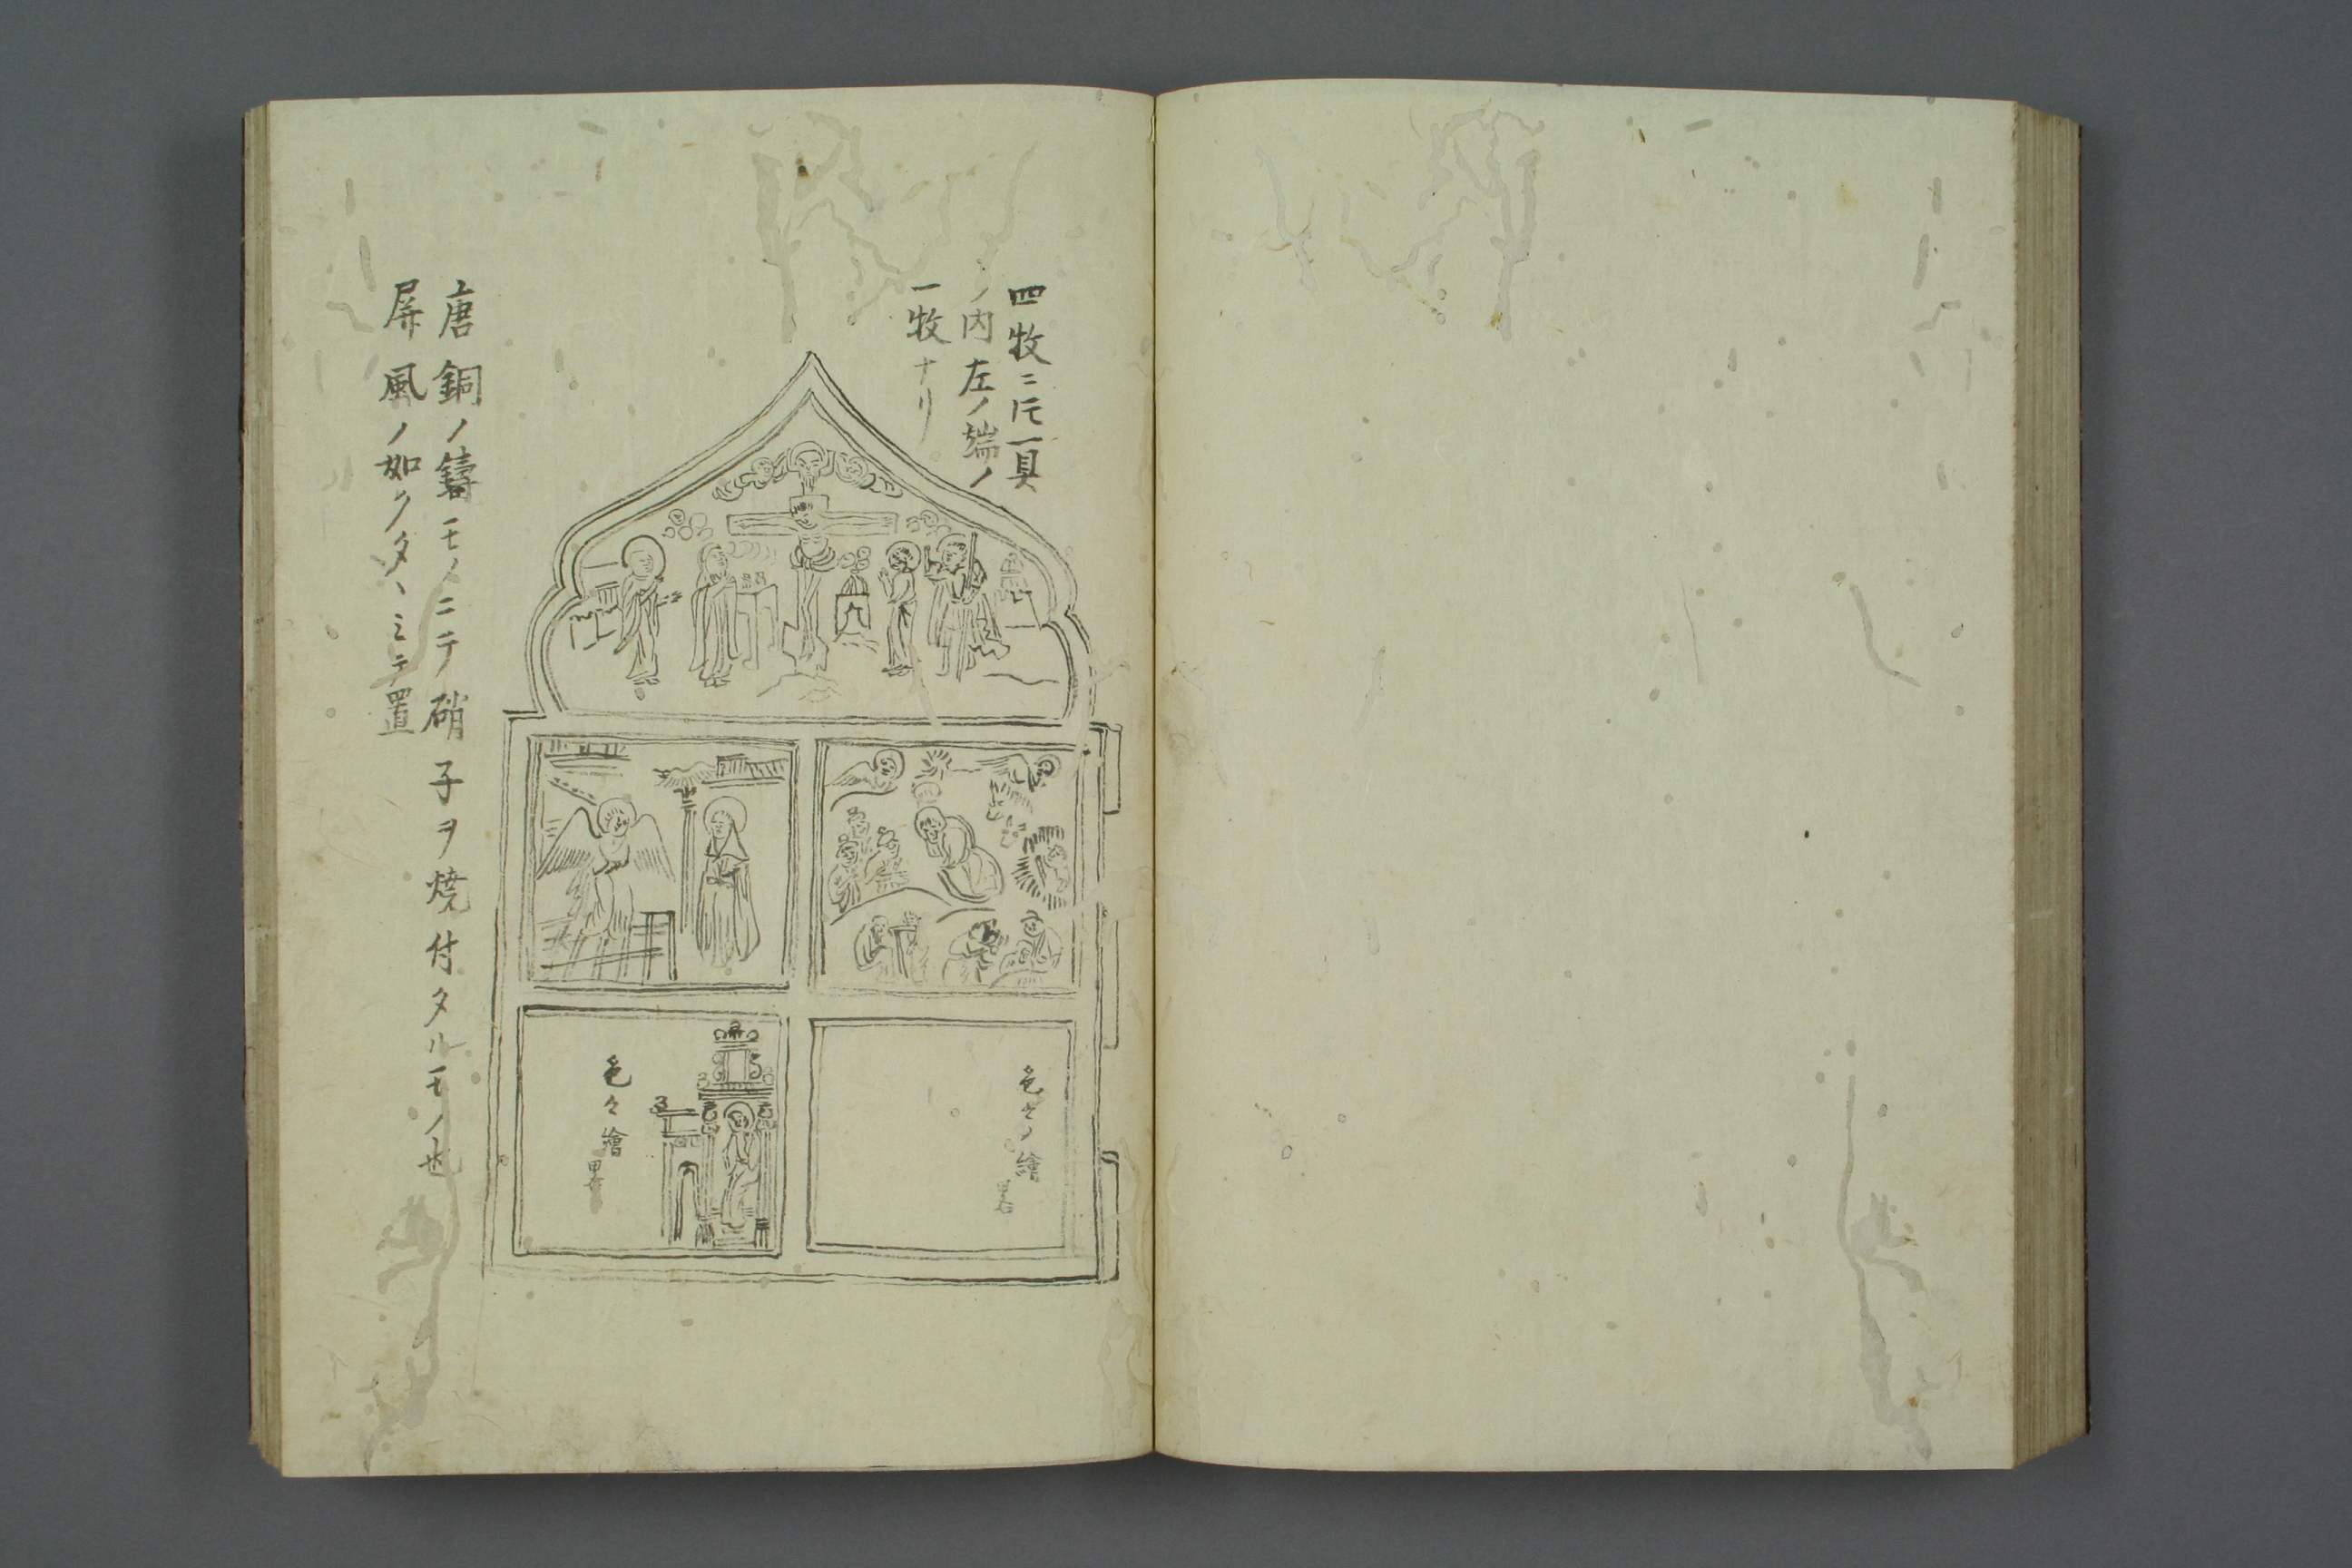 四牧ニ〆一具
ノ内左ノ端ノ
一牧ナリ
色々ノ繪
畧
色々繪
畧
唐銅ノ鑄モノニテ硝子ヲ焼付タルモノ也
屏風ノ如クタヽミテ置